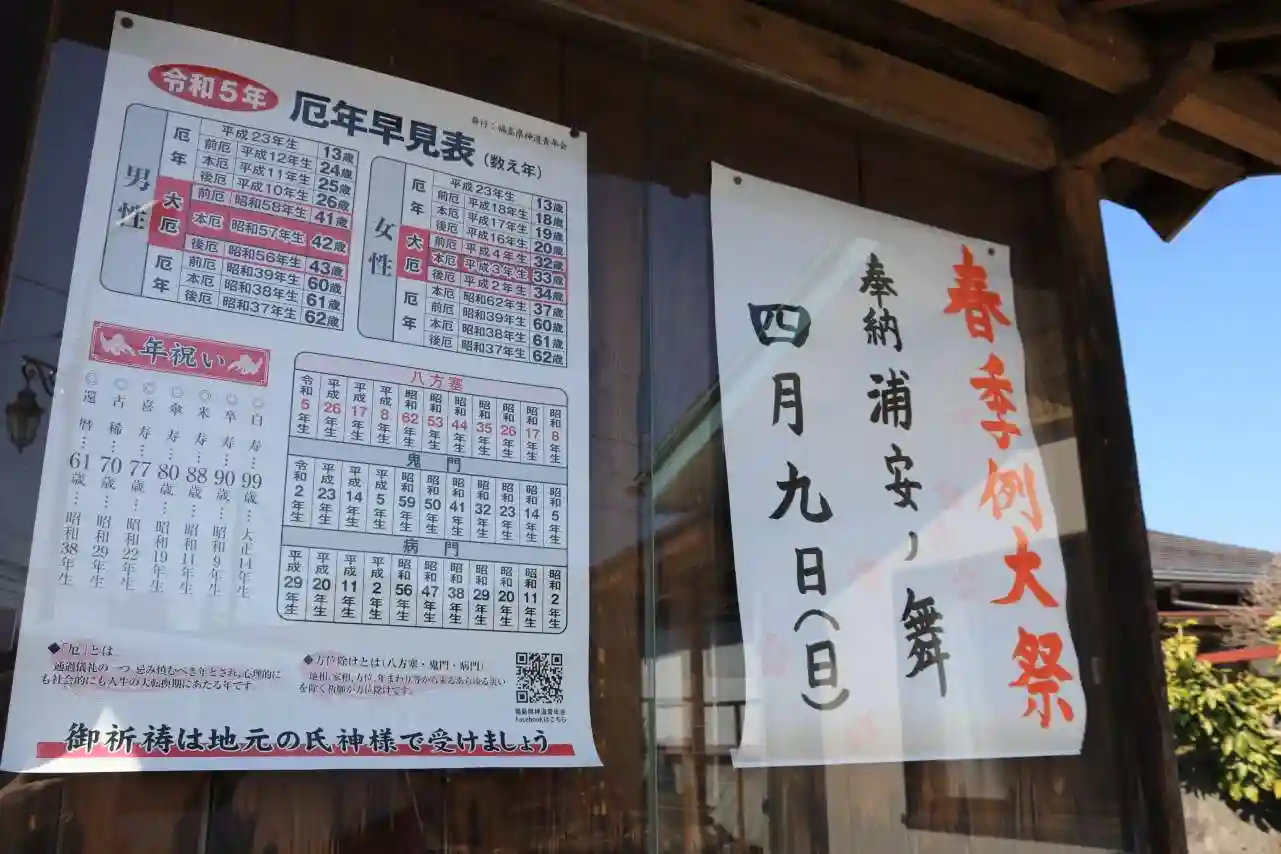 令和5年
厄年早見表(数え年)
発行:福島県神道青年会
男性
厄年
平成23年生 13歳
前厄 平成12年生 24歳
本厄 平成11年生 25歳
後厄 平成10年生 26歳
大厄
前厄 昭和58年生 41歳
本厄 昭和57年生 42歳
後厄 昭和56年生 43歳
厄年
前厄 昭和39年生 60歳
本厄 昭和38年生 61歳
後厄 昭和37年生 62歳
女性
厄年
平成23年生 13歳
前厄 平成18年生 18歳
本厄 平成17年生 19歳
後厄 平成16年生 20歳
大厄
前厄 平成4年生 32歳
本厄 平成3年生 33歳
後厄 平成2年生 34歳
厄年
昭和62年生 37歳
前厄 昭和39年生 60歳
本厄 昭和38年生 61歳
後厄 昭和37年生 62歳
年祝い
◎白寿…99歳…大正14年生
◎卒寿…90歳…昭和9年生
◎米寿…88歳…昭和11年生
◎傘寿…80歳…昭和19年生
◎喜寿…77歳…昭和22年生
◎古稀…70歳…昭和29年生
◎還暦…61歳…昭和38年生
八方塞
令和5年生 平成26年生 平成17年生 平成8年生 昭和62年生 昭和53年生 昭和44年生 昭和35年生 昭和26年生 昭和17年生 昭和8年生
鬼門
令和2年生 平成23年生 平成14年生 平成5年生 昭和59年生 昭和50年生 昭和41年生 昭和32年生 昭和23年生 昭和14年生 昭和5年生
病門
平成29年生 平成20年生 平成11年生 平成2年生 昭和56年生 昭和47年生 昭和38年生 昭和29年生 昭和20年生 昭和11年生 昭和2年生
◆「厄」とは
通過儀礼の一つ。忌み慎むべき年とされ、心理的に
も社会的にも人生の大転換期にあたる年です。
◆方位除けとは(八方塞・鬼門・病門)
地相、家相、方位、年まわり等から来るあらゆる災い
を除く祈願が方位除けです。
福島県神道青年会
Facebookはこちら
御祈祷は地元の氏神様で受けましょう
春季例大祭
奉納浦安ノ舞
四月九日(日)